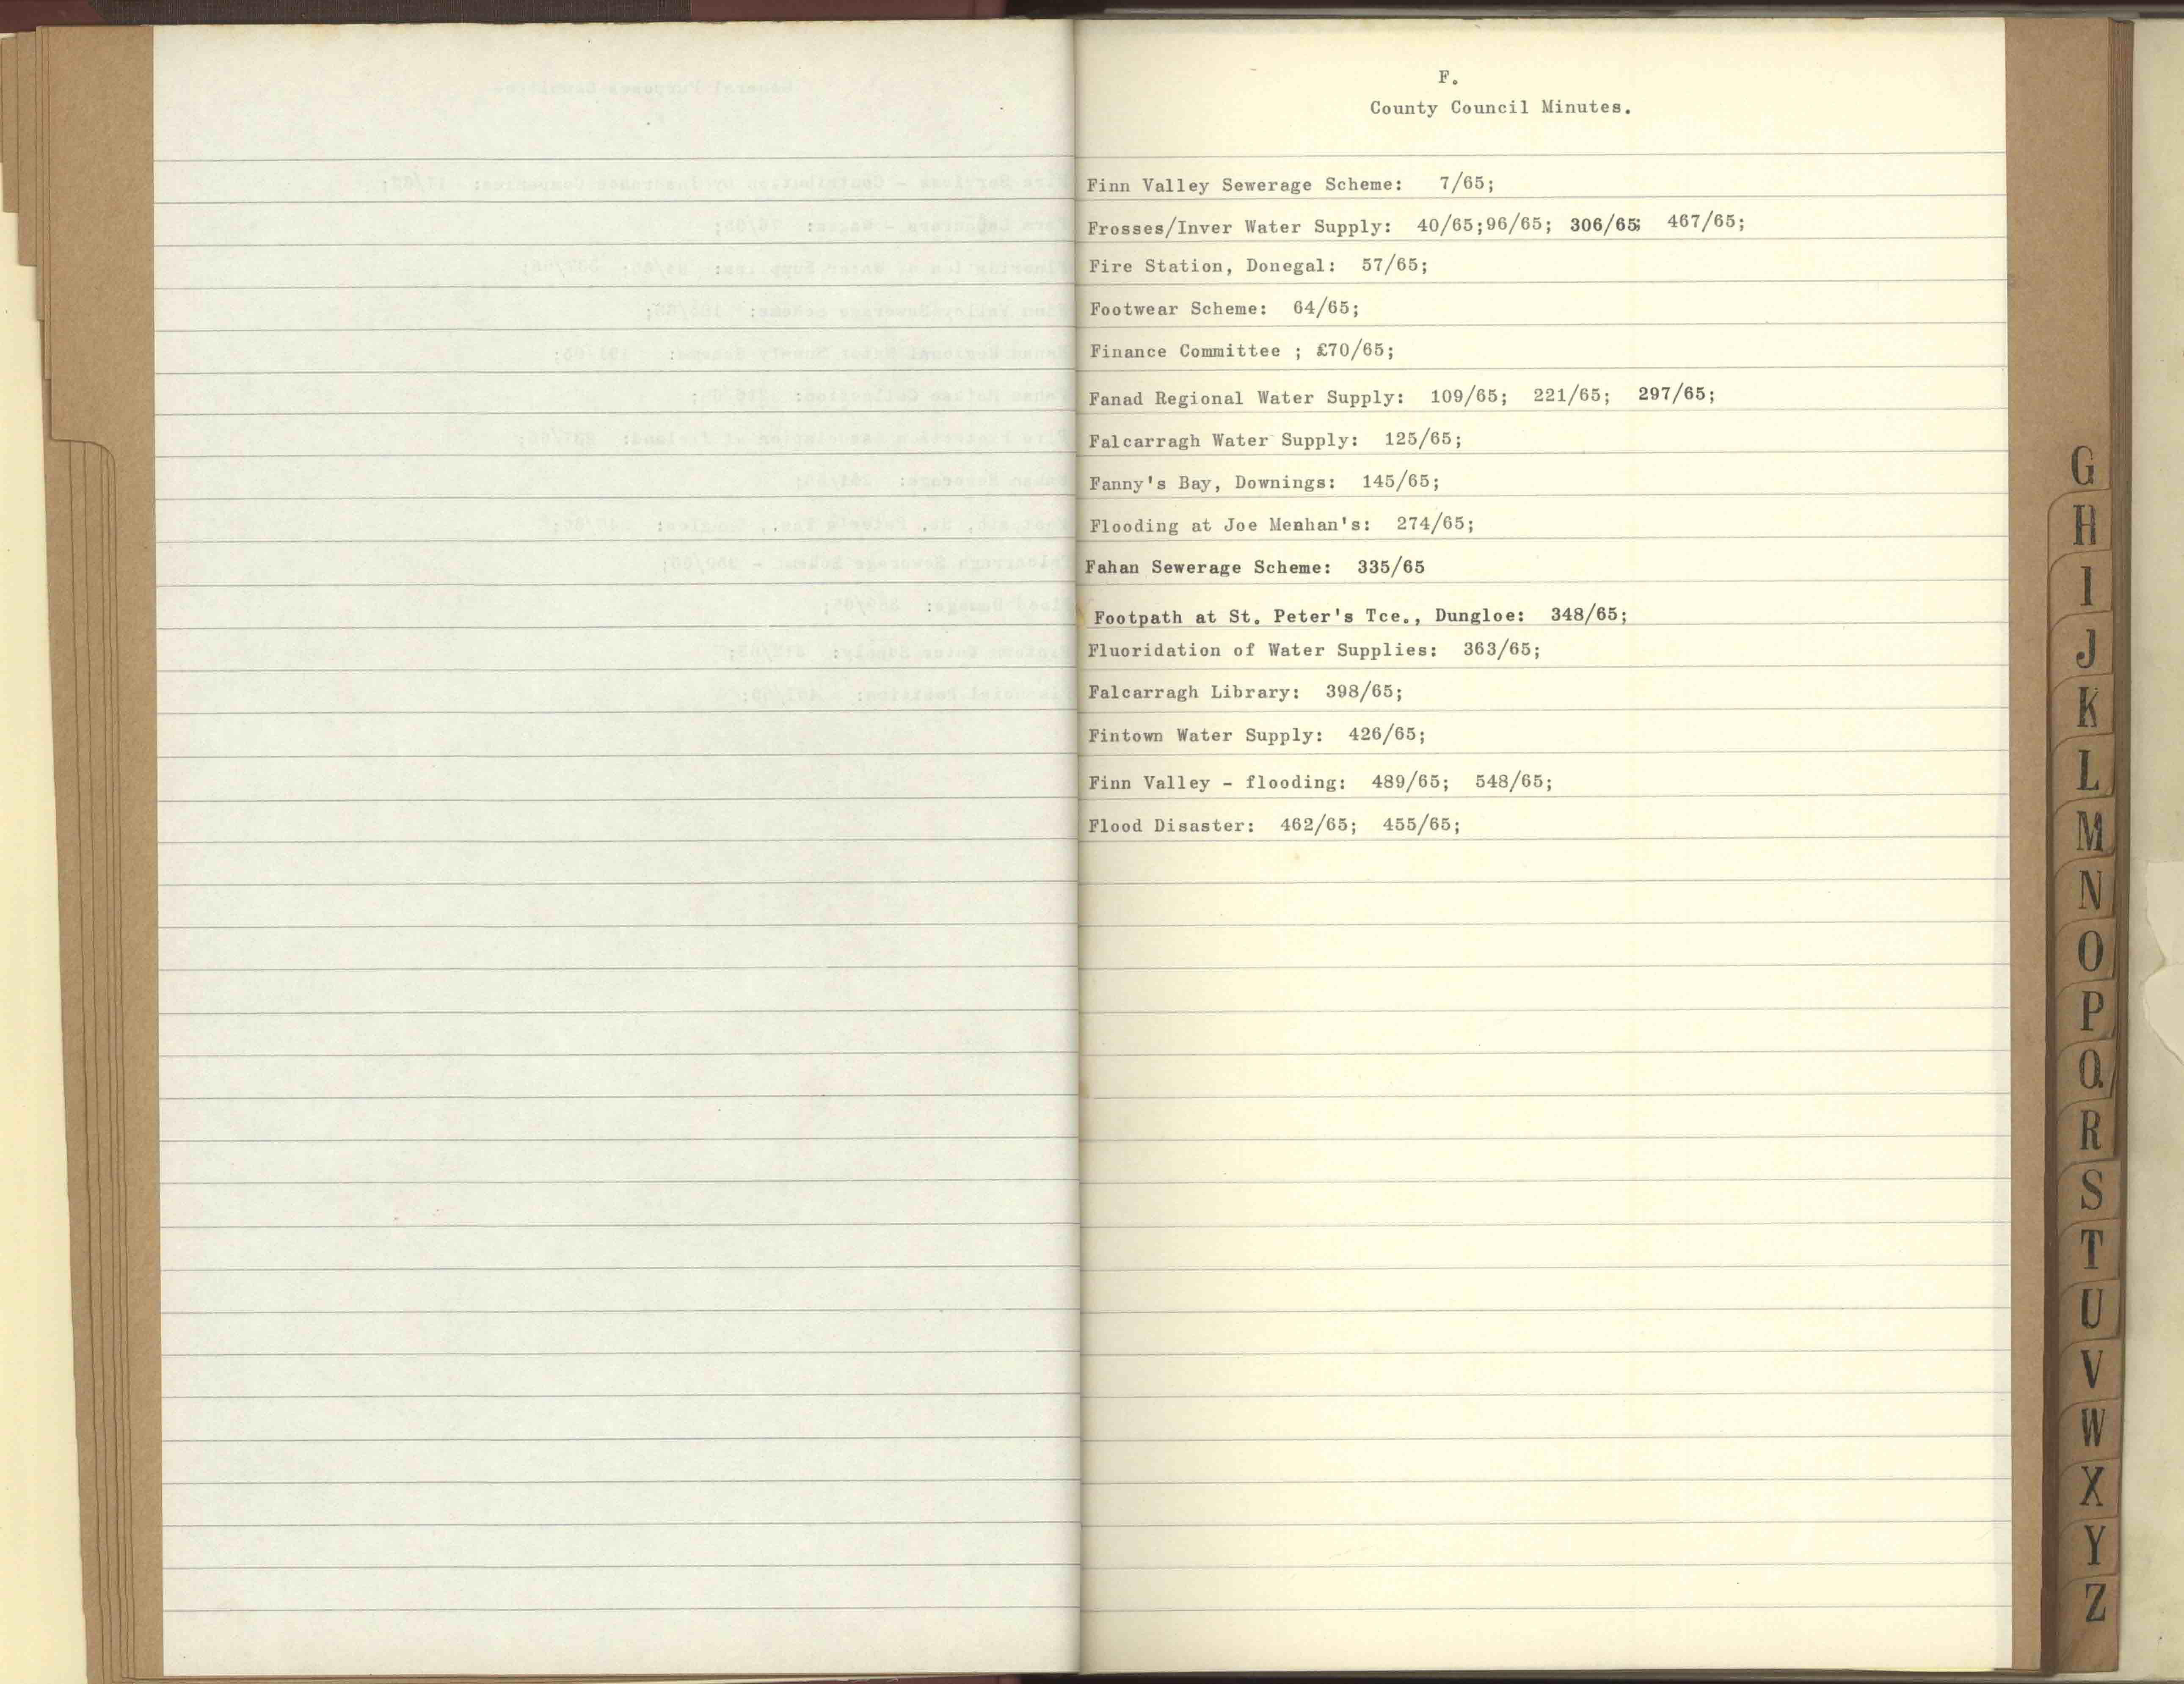 F.
County Council Minutes.
Finn Valley Sewerage Scheme: 7/65;
Frosses/Inver Water Supply: 40/65;96/65; 306/65; 467/65;
Fire Station, Donegal: 57/65;
Footwear Scheme: 64/65;
Finance Committee ; £70/65;
Fanad Regional Water Supply: 109/65; 221/65; 297/65;
Falcarragh Water Supply: 125/65;
Fanny's Bay, Downings: 145/65;
Flooding at Joe Meehan's: 274/65;
Fahan Sewerage Scheme: 335/65
Footpath at St. Peter's Tce., Dungloe: 348/65;
Fluoridation of Water Supplies: 363/65;
Falcarragh Library: 398/65;
Fintown Water Supply: 426/65;
Finn Valley - flooding: 489/65; 548/65;
Flood Disaster: 462/65; 455/65;
G
H
I
J
K
L
M
N
O
P
Q
R
S
T
U
V
W
X
Y
Z